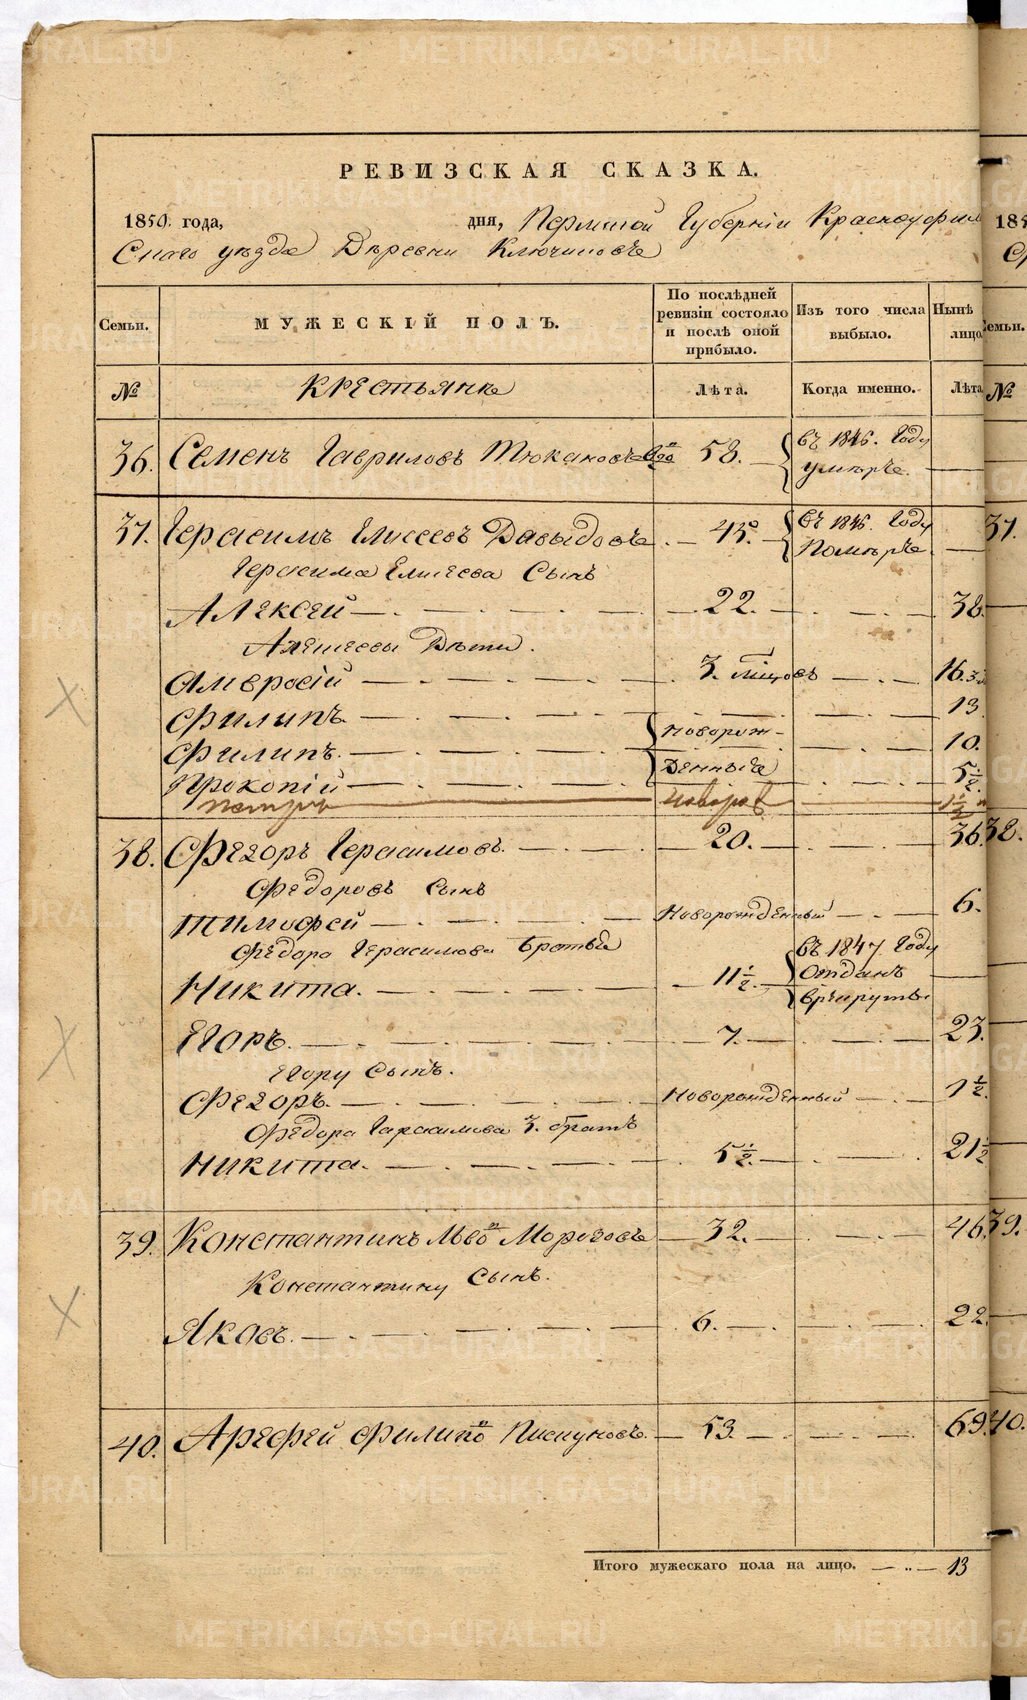 РЕВИЗСКАЯ СКАЗКА.
1850. года, дня, Пермской Губерніи Красноуфим
Скаго уѣзда Деревни Ключиковъ
Семьи. МУЖЕСКІЙ ПОЛЪ. По послѣдней ревизіи состояло и послѣ оной прибыло. Изъ того числа выбыло. Нынѣ лицо
№ Крестьяне Лѣта. Когда именно. Лѣта
36. Семенъ Гавриловъ Тюкановъ 58. въ 1846. Году
умѣръ
37. Герасимъ Елисеевъ Давыдовъ 45. въ 1846. Году
Помѣръ
Герасима Елисеева Сынъ
Алексей 22. 38.
Алексеевы Дѣти.
Амвросій 3. 16.
Филипъ 13
Новорож-
Филипъ. 10.
Денныя
Прокопій 5½.
Петръ новорож 1½
38. Федоръ Герасимовъ. 20. 36.
Федоровъ Сынъ
Тимофей Новорожденный 6.
Федора Герасимова Братья въ 1847 Году
Никита. 11½. Отданъ
врекруты
Егоръ. 7. 23.
Егору Сынъ.
Федоръ. Новорожденный 1½.
Федора Гарасимова 3. братъ
Никита. 5½. 21½
39. Константинъ Льво Морозовъ 32. 46.
Константину Сынъ.
Яковъ. 6. 22.
40. Арефей Филипо Пискуновъ. 53. 69.
Итого мужескаго пола на лицо. 13
185
Семьи.
№
37.
38.
39.
40.
METRIKI.GASO-URAL.RU